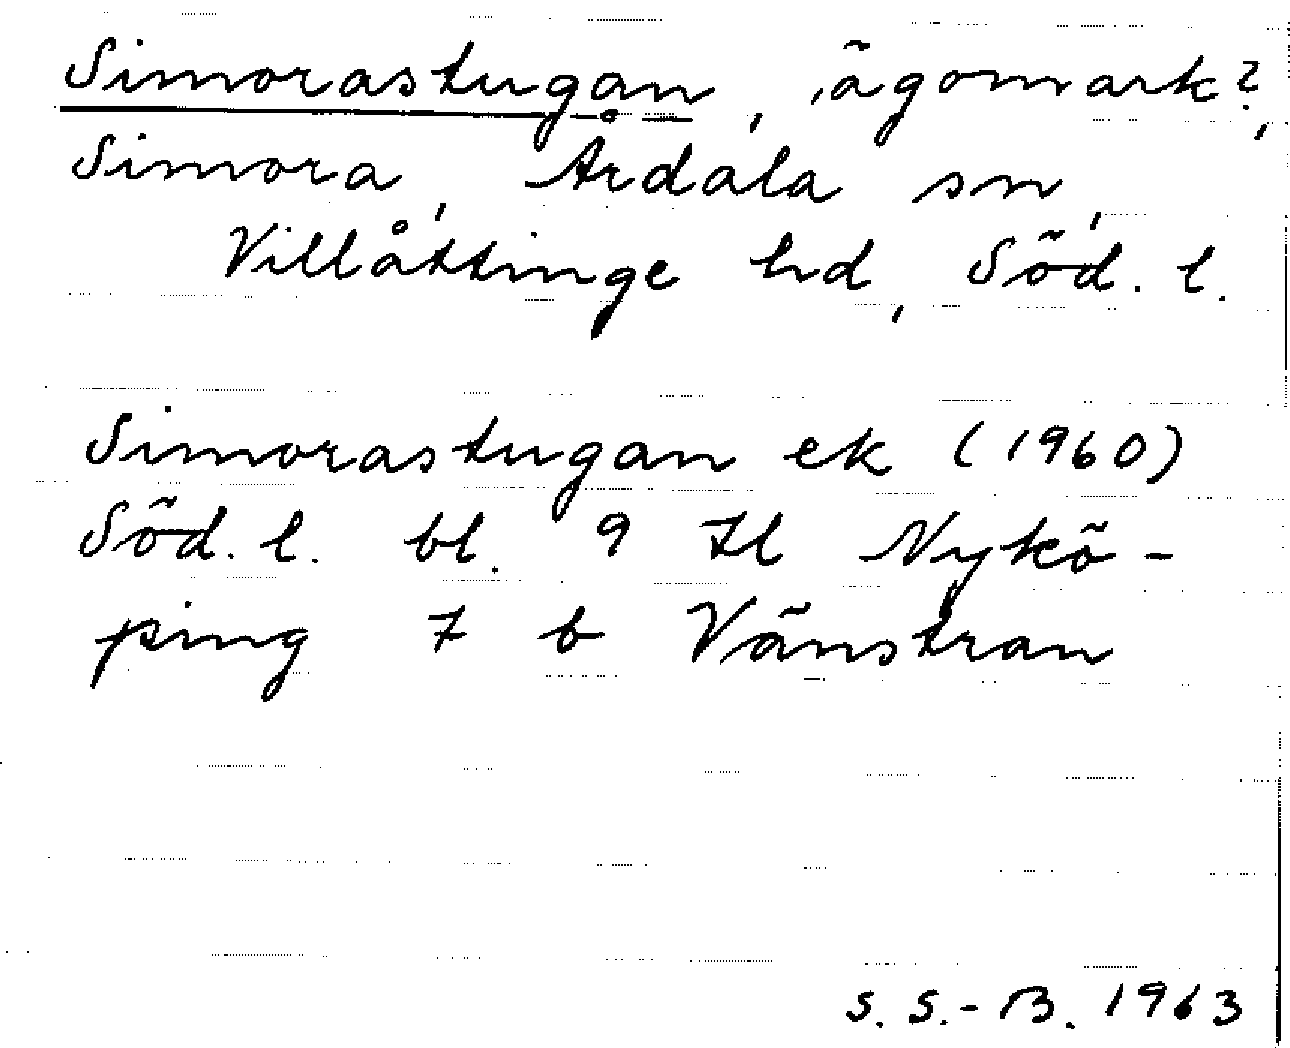 Simorastugan, ägomark?,
Simora, Årdala sn,
Villåttinge hd, Söd. l.
Simorastugan ek (1960)
Söd. l. bl. 9 Hl Nykö-
ping 7 b Vänstran
S. S.-B. 1963